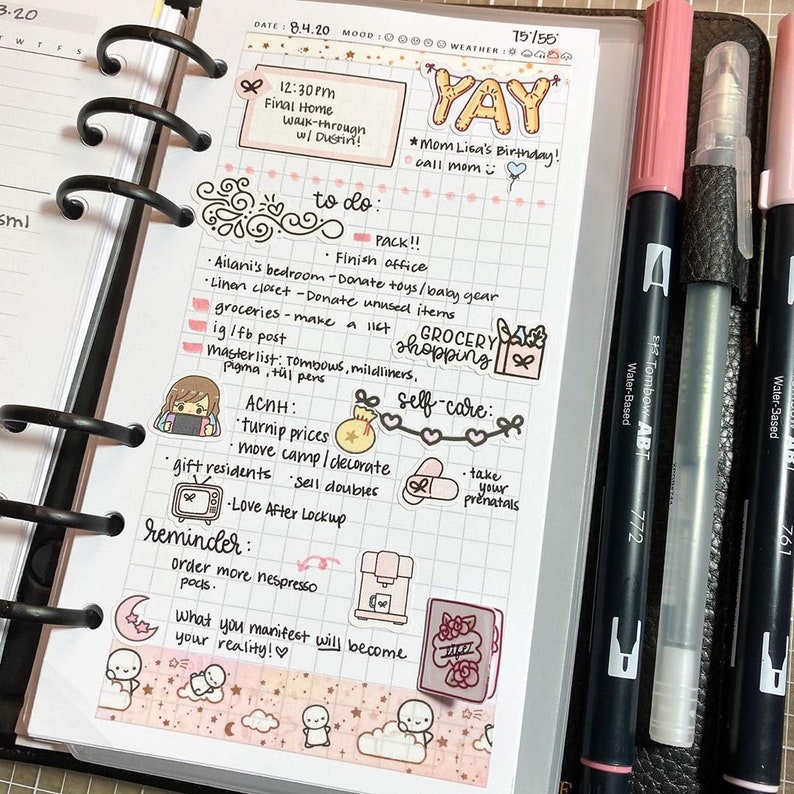 3.20
T W T F S
sml
DATE : 8.4.20 MOOD : WEATHER : 75°/55°
12:30pm
Final Home
walk-through
w/ Dustin!
YAY
* Mom Lisa's Birthday!
call mom
to do:
Pack!!
• Finish office
• Ailani's bedroom - Donate toys/baby gear
• Linen closet - Donate unused items
groceries - make a list
ig/fb post
GROCERY
shopping
masterlist: Tombows, mildliners,
pigma, tül pens
ACNH:
• turnip prices
• move camp/decorate
• gift residents • sell doubles
self-care:
• take
your
prenatals
• Love After Lockup
reminder:
order more nespresso
pods.
What you manifest will become
your reality!♡
life
Tombow ABT
Water-Based
772
ABT
Water-Based
761